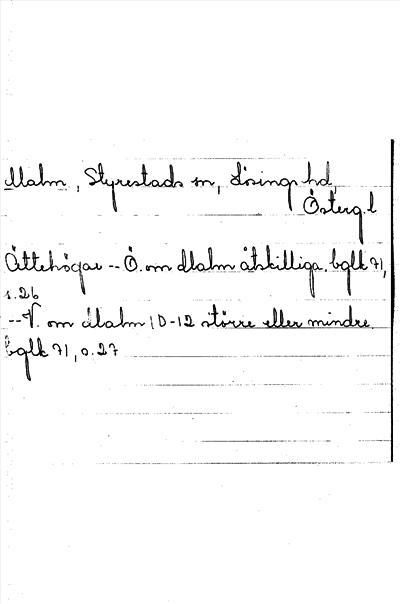 Malm, Styrestads sn, Lösings hd,
Österg.l
Ättehögar -- Ö. om Malm åtskilliga. bglk 71,
s. 26
-- V. om Malm 10-12 större eller mindre.
bglk 71, s. 27